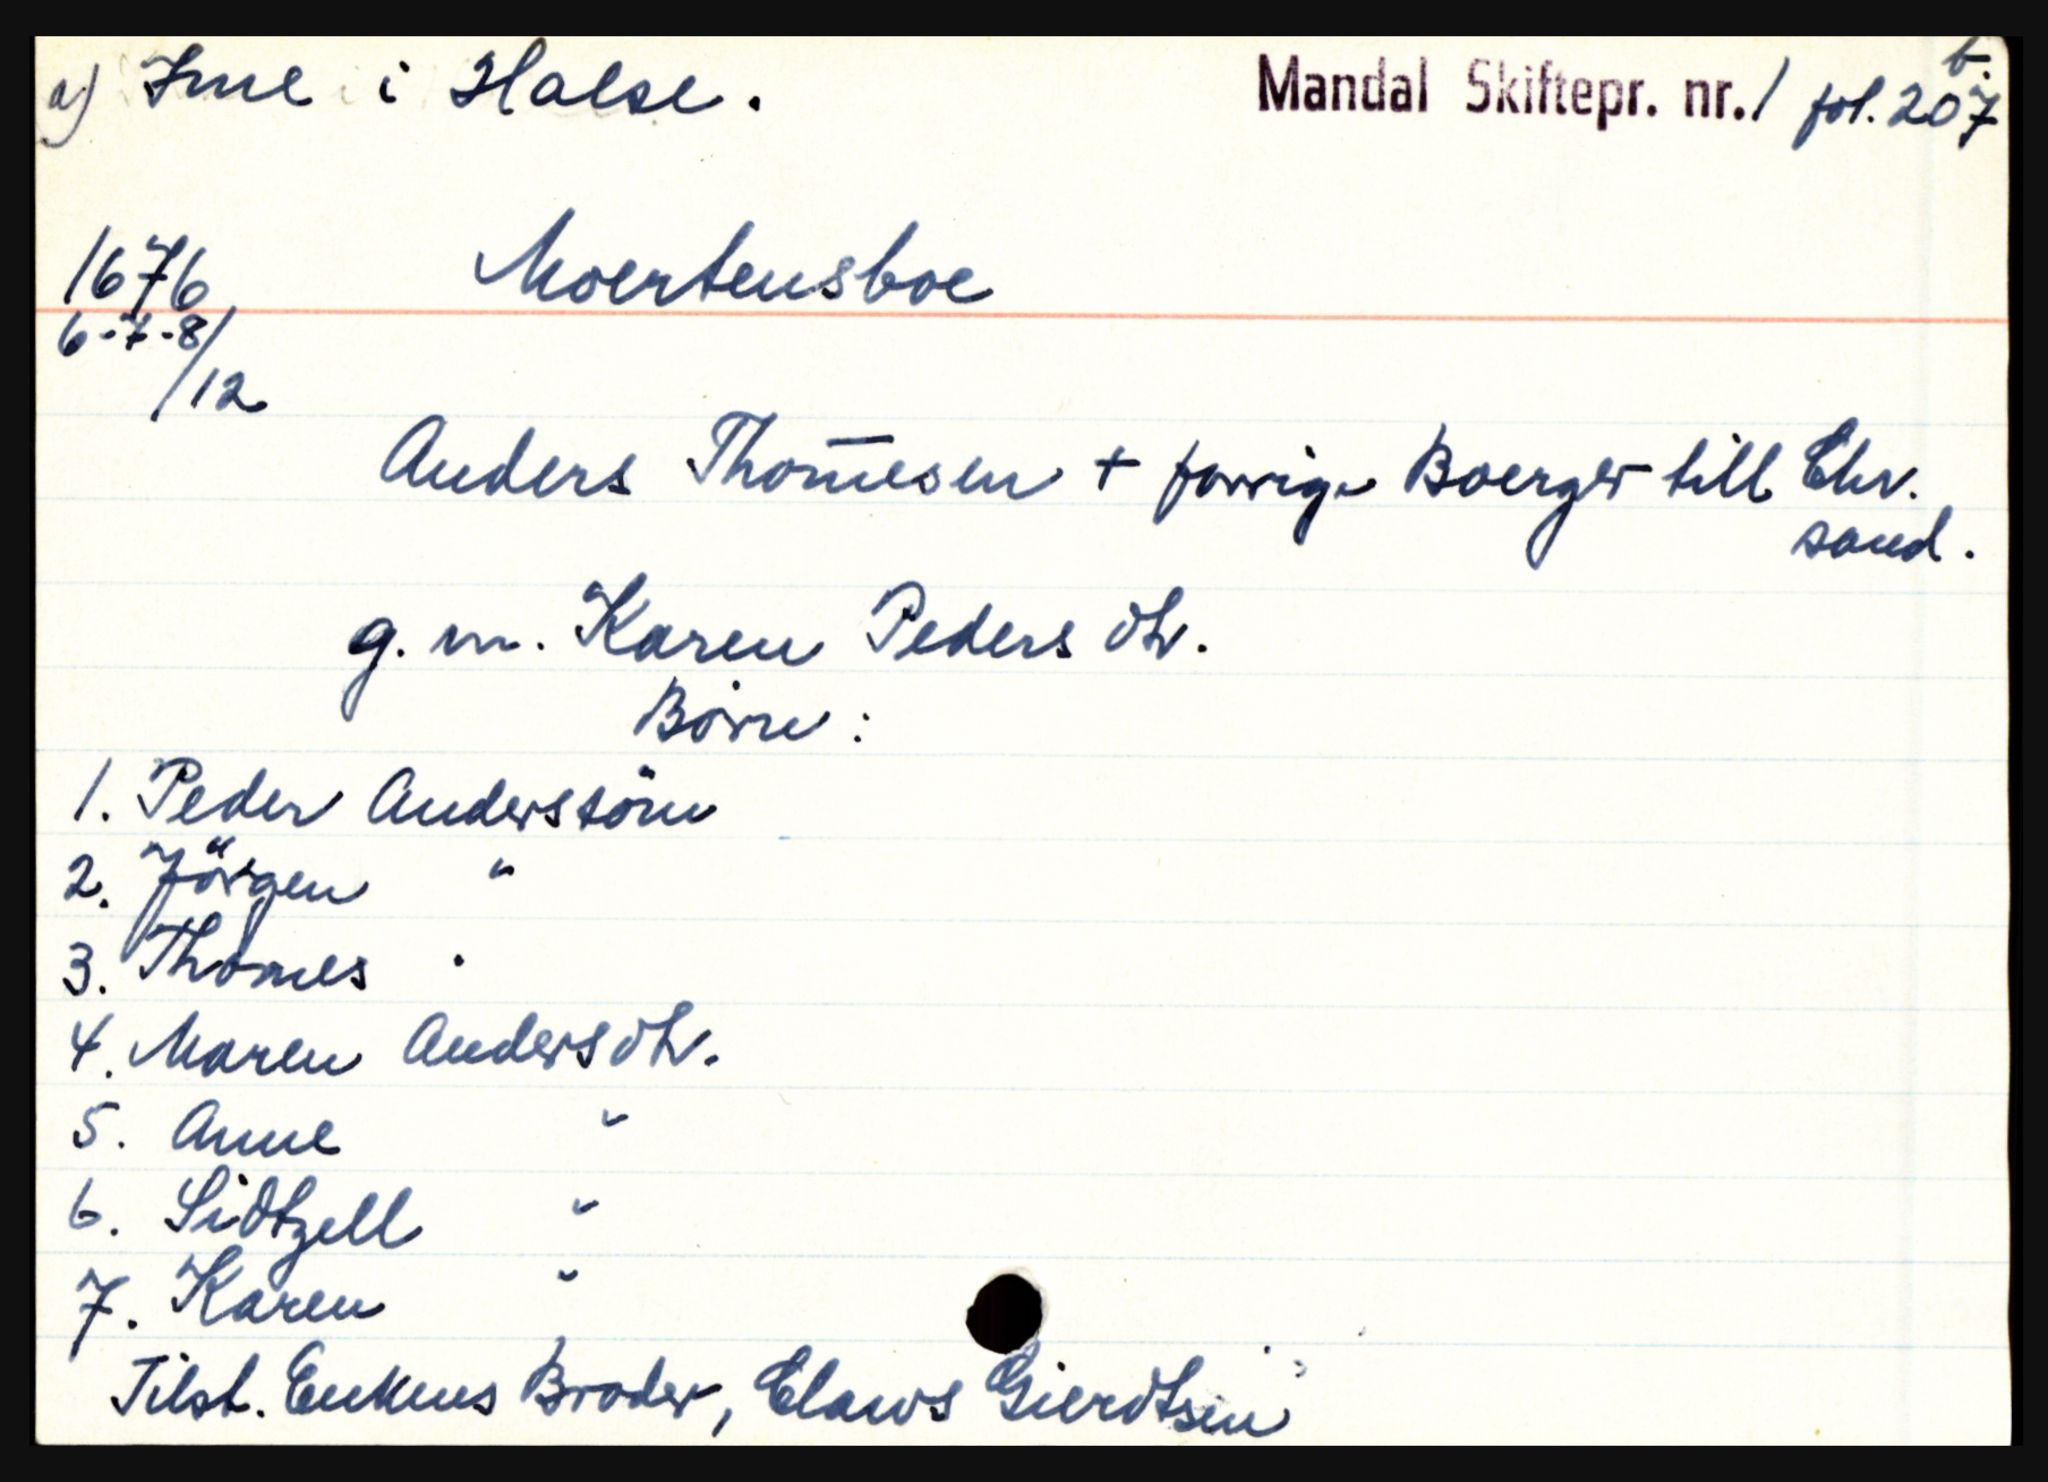 a) Ime i Halse. Mandal Skiftepr. nr. 1 fol. 207 b.
1676 Moertensboe
6-7-8/12
Anders Thom̄esen + forrige Boerger till Chr.
sand.
g. m. Karen Peders dtr.
Børn:
1. Peder Anderssönn
2. Jörgen "
3. Thomes "
4. Maren Anders dtr.
5. Anne "
6. Sidtzell "
7. Karen "
Tilst. Enkens Broder, Claws Gierdtsen